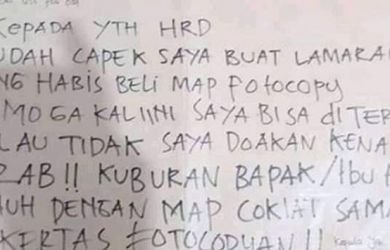 KEPADA YTH HRD
UDAH CAPEK SAYA BUAT LAMARA
NG HABIS BELI MAP FOTOCOPY
MOGA KALI INI SAYA BISA diTER
LAU TIDAK SAYA DOAKAN KENA
ZAB!! KUBURAN BAPAK/Ibu H
UH DENGAN MAP COKLAT SAMA
KERTAS FOTOCOPYAN!!